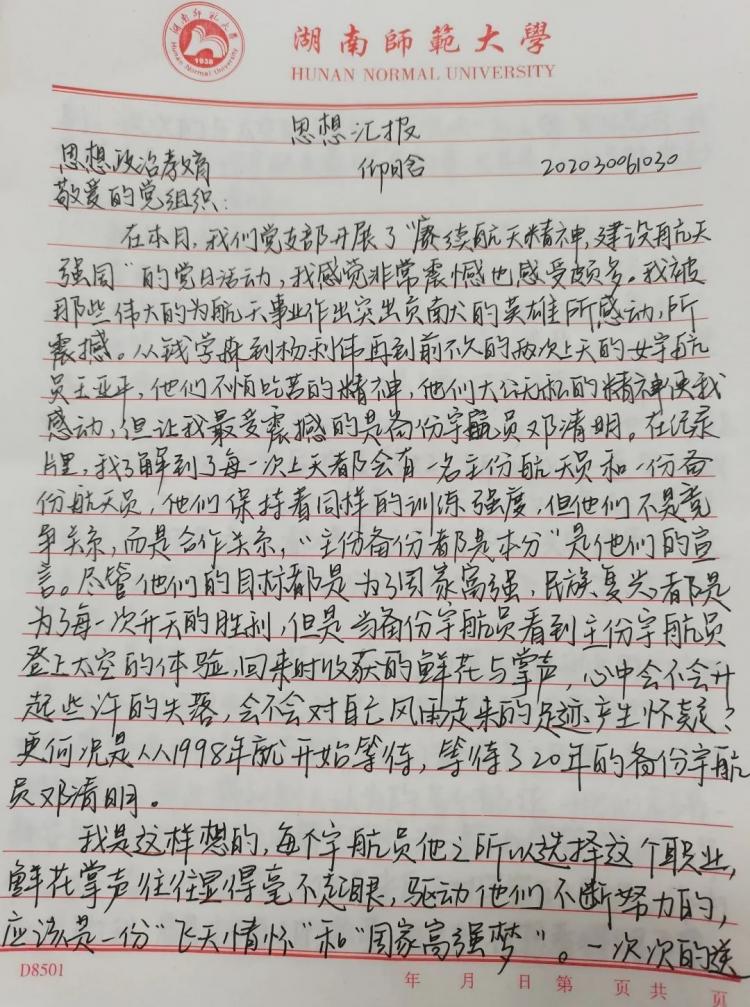 湖南师范大学
HUNAN NORMAL UNIVERSITY
1938
湖南師範大學
HUNAN NORMAL UNIVERSITY
思想汇报
思想政治教育 仰晗 202030061030
敬爱的党组织:
在本月,我们党支部开展了“赓续航天精神,建设航天
强国”的党日活动,我感觉非常震憾也感受颇多。我被
那些伟大的为航天事业作出突出贡献的英雄所感动,所
震撼。从钱学森到杨利伟再到前不久的两次上天的女宇航
员王亚平,他们不怕吃苦的精神,他们大公无私的精神使我
感动,但让我最受震撼的是备份宇航员邓清明。在纪录
片里,我了解到了每一次上天都会有一名主份航天员和一份备
份航天员,他们保持着同样的训练强度,但他们不是竞
争关系,而是合作关系,“主份备份都是本分”是他们的宣
言。尽管他们的目标都是为了国家富强,民族复兴都是
为了每一次升天的胜利,但是当备份宇航员看到主份宇航员
登上太空的体验,回来时收获的鲜花与掌声,心中会不会升
起些许的失落,会不会对自己风雨走来的足迹产生怀疑?
更何况是从1998年就开始等待,等待了20年的备份宇航
员邓清明。
我是这样想的,每个宇航员他之所以选择这个职业,
鲜花掌声往往显得毫不起眼,驱动他们不断努力的,
应该是一份“飞天情怀”和“国家富强梦”。一次次的送
D8501 年 月 日 第 页 共 页